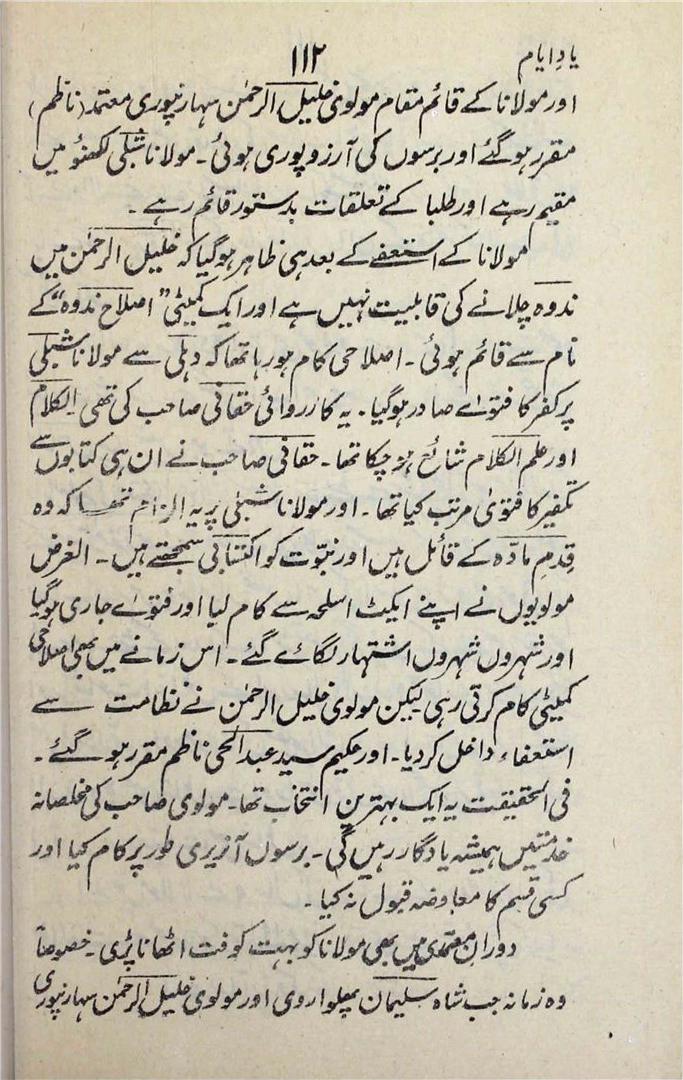 یادِ ایام ۱۱۲
اور مولانا کے قائم مقام مولوی خلیل الرحمٰن سہارنپوری معتمد (ناظم)
مقرر ہو گئے اور برسوں کی آرزو پوری ہوئی۔ مولانا شبلی لکھنؤ میں
مقیم رہے اور طلبا کے تعلقات بدستور قائم رہے۔
مولانا کے استعفے کے بعد ہی ظاہر ہو گیا کہ خلیل الرحمٰن میں
ندوہ چلانے کی قابلیت نہیں ہے اور ایک کمیٹی "اصلاح ندوہ" کے
نام سے قائم ہوئی۔ اصلاحی کام ہو رہا تھا کہ دہلی سے مولانا شبلی
پر کفر کا فتویٰ صادر ہو گیا۔ یہ کارروائی حقانی صاحب کی تھی الکلام
اور علم الکلام شائع ہو چکا تھا۔ حقانی صاحب نے ان ہی کتابوں سے
تکفیر کا فتویٰ مرتب کیا تھا۔ اور مولانا شبلی پر یہ الزام تھا کہ وہ
قِدمِ مادّہ کے قائل ہیں اور نبوّت کو اکتسابی سمجھتے ہیں۔ الغرض
مولویوں نے اپنے ایکٹ اسلحہ سے کام لیا اور فتوے جاری ہو گیا
اور شہروں شہروں اشتہار لگائے گئے۔ اس زمانے میں بھی اصلاحی
کمیٹی کام کرتی رہی لیکن مولوی خلیل الرحمٰن نے نظامت سے
استعفاء داخل کر دیا۔ اور حکیم سید عبدالحی ناظم مقرر ہو گئے۔
فی الحقیقت یہ ایک بہترین انتخاب تھا۔ مولوی صاحب کی مخلصانہ
خدمتیں ہمیشہ یادگار رہیں گی۔ برسوں آنریری طور پر کام کیا اور
کسی قسم کا معاوضہ قبول نہ کیا۔
دورانِ معتمدی میں بھی مولانا کو بہت کوفت اٹھانا پڑی۔ خصوصاً
وہ زمانہ جب شاہ سلیمان پھلواروی اور مولوی خلیل الرحمٰن سہارنپوری